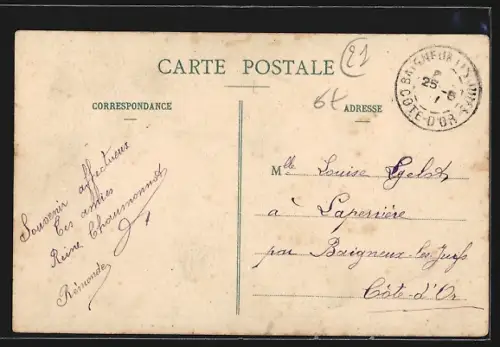 CARTE POSTALE
21
6t
CORRESPONDANCE
ADRESSE
BAIGNEUX-LES-JUIFS
25 - 8
CÔTE-D'OR
Souvenir affectueux
tes amies
Reine Chaumonnot
Rémonde
Mlle Louise
à Laperrière
par Baigneux-les-Juifs
Côte-d'Or